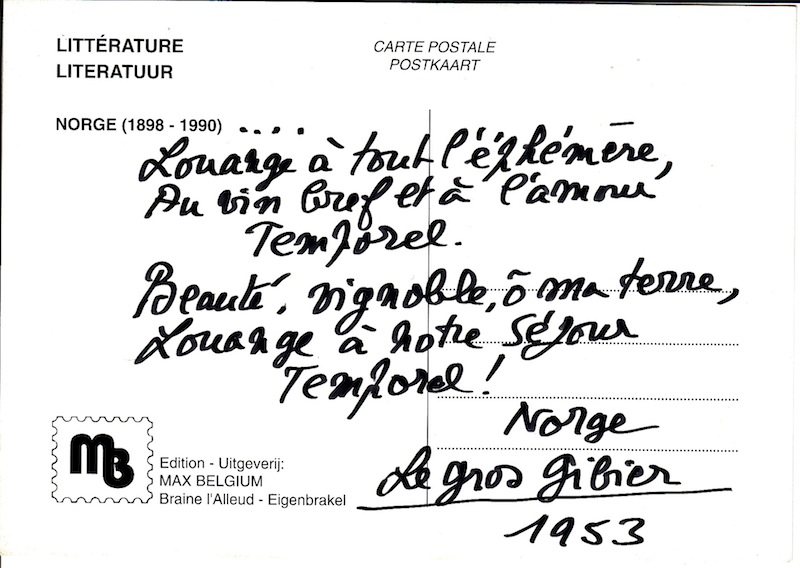 LITTÉRATURE
LITERATUUR
CARTE POSTALE
POSTKAART
NORGE (1898 - 1990) ....
Louange à tout l'éphémère,
Au vin bref et à l'amour
Temporel.
Beauté, vignoble, ô ma terre,
Louange à notre séjour
Temporel !
Norge
Le gros gibier
1953
MB
Edition - Uitgeverij:
MAX BELGIUM
Braine l'Alleud - Eigenbrakel